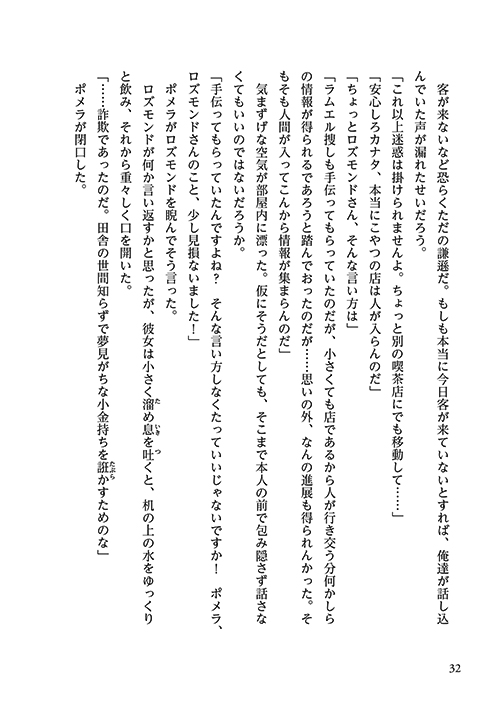 客が来ないなど恐らくただの謙遜だ。もしも本当に今日客が来ていないとすれば、俺達が話し込
んでいた声が漏れたせいだろう。
「これ以上迷惑は掛けられませんよ。ちょっと別の喫茶店にでも移動して……」
「安心しろカナタ、本当にこやつの店は人が入らんのだ」
「ちょっとロズモンドさん、そんな言い方は」
「ラムエル捜しも手伝ってもらっていたのだが、小さくても店であるから人が行き交う分何かしら
の情報が得られるであろうと踏んでおったのだが……思いの外、なんの進展も得られんかった。そ
もそも人間が入ってこんから情報が集まらんのだ」
　気まずげな空気が部屋内に漂った。仮にそうだとしても、そこまで本人の前で包み隠さず話さな
くてもいいのではないだろうか。
「手伝ってもらっていたんですよね？　そんな言い方しなくたっていいじゃないですか！　ポメラ、
ロズモンドさんのこと、少し見損ないました！」
　ポメラがロズモンドを睨んでそう言った。
　ロズモンドが何か言い返すかと思ったが、彼女は小さく溜め息を吐くと、机の上の水をゆっくり
と飲み、それから重々しく口を開いた。
「……詐欺であったのだ。田舎の世間知らずで夢見がちな小金持ちを誑かすためのな」
　ポメラが閉口した。
32